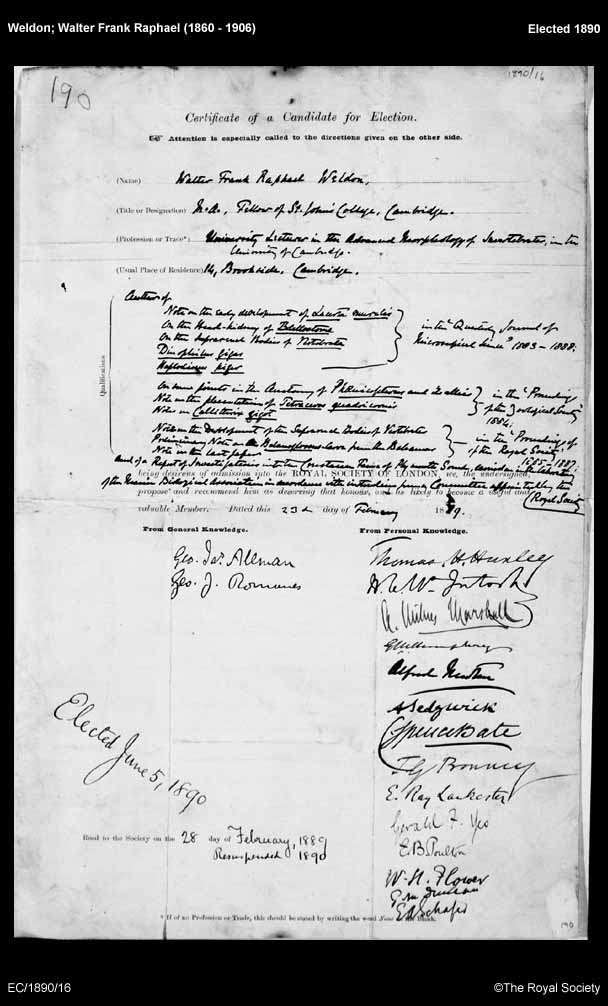 Weldon; Walter Frank Raphael (1860 - 1906)
Elected 1890
190
1890/16
Certificate of a Candidate for Election.
☞ Attention is especially called to the directions given on the other side.
(Name) Walter Frank Raphael Weldon,
(Title or Designation) M.A., Fellow of St. John's College, Cambridge.
(Profession or Trade*) University Lecturer in the Advanced Morphology of Invertebrates, in the
University of Cambridge.
(Usual Place of Residence) 14, Brookside, Cambridge.
Qualifications
Author of
Note on the early development of Lacerta muralis
On the Head-kidney of Bdellostoma
On the Suprarenal Bodies of Vertebrata
Dinophilus gigas
Haplodiscus piger
in the "Quarterly Journal of
Microscopical Science" 1883–1888.
On some points in the Anatomy of Phoenicopterus and its allies
Note on the placentation of Tetraceros quadricornis
Notes on Callithrix gigot
in the "Proceedings
of the Zoological Society"
1884.
Note on the Development of the Suprarenal Bodies of Vertebrates
Preliminary Note on the Balanoglossus larva from the Bahamas
Note on the last paper.
in the "Proceedings of
the Royal Society"
1885–1887.
and of a Report of Investigations into the Crustacean Fauna of Plymouth Sound, carried on in the Laboratory
of the Marine Biological Association in accordance with instructions from a Committee appointed by the
Royal Society
being desirous of admission into the ROYAL SOCIETY OF LONDON, we, the undersigned,
propose and recommend him as deserving that honour, and as likely to become a useful and
valuable Member. Dated this 23d day of February 1889.
From General Knowledge.
From Personal Knowledge.
Geo. Jas. Allman
Geo. J. Romanes
Thomas H. Huxley
W. C. McIntosh
A. Milnes Marshall
G M Humphry
Alfred Newton
A Sedgwick
C Spence Bate
T G Bonney
E. Ray Lankester
Gerald F. Yeo
E. B. Poulton
W. H. Flower
P. M. Duncan
E A Schäfer
Elected June 5, 1890
Read to the Society on the 28 day of February, 1889
Resuspended 1890
* If of no Profession or Trade, this should be stated by writing the word None in the blank.
190
EC/1890/16
©The Royal Society